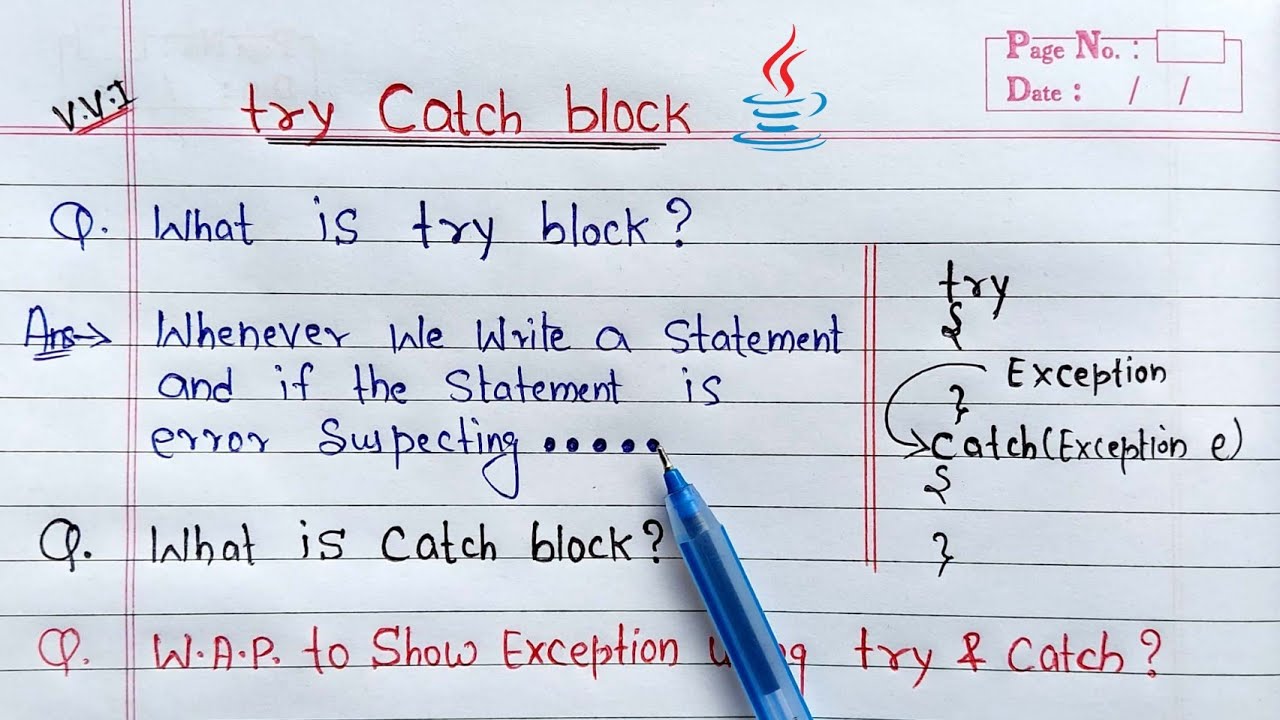 Page No. :
Date : / /
V.V.I
try Catch block
Q. What is try block?
Ans→ Whenever We Write a Statement
and if the Statement is
error Suspecting •••••
try
{
Exception
}
Catch(Exception e)
{
}
Q. What is Catch block?
Q. W.A.P. to Show Exception try & Catch?